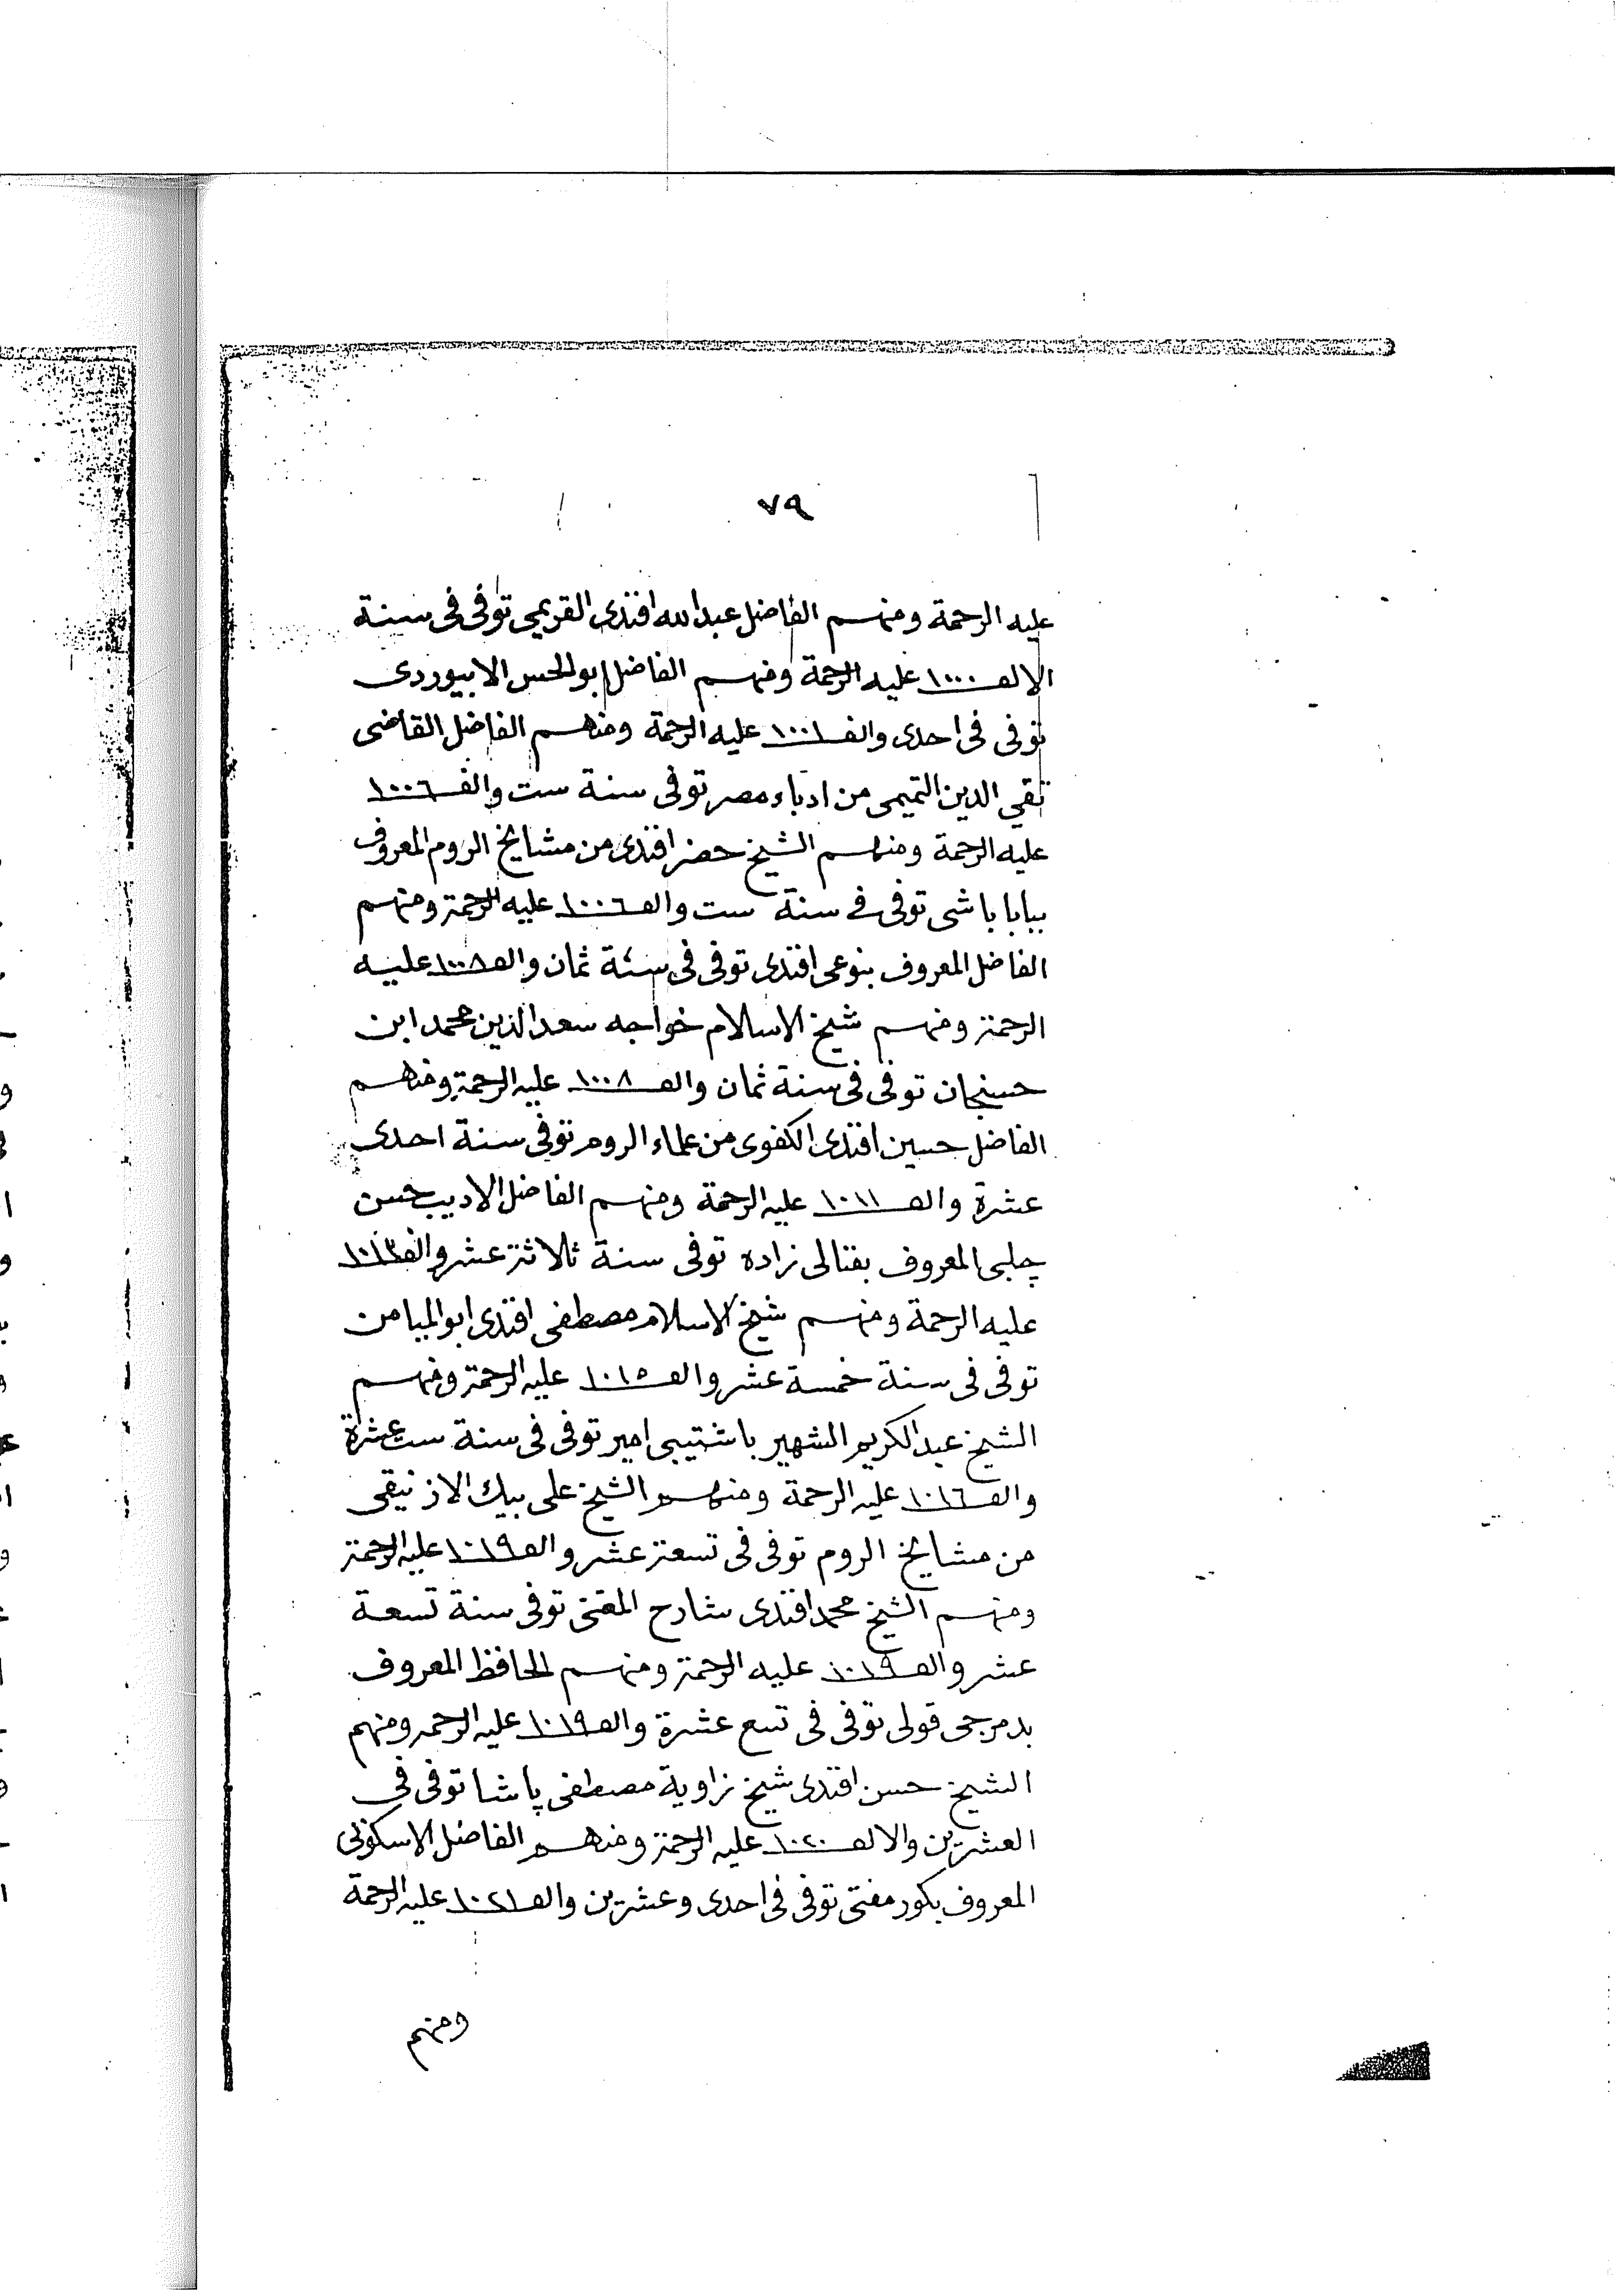 ٧٩
عليه الرحمة ومنهم الفاضل عبدالله افندى القريمى توفى فى سنة
الالف ١٠٠٠ عليه الرحمة ومنهم الفاضل ابوالحسن الابيوردى
توفى فى احدى والف ١٠٠١ عليه الرحمة ومنهم الفاضل القاضى
تقي الدين التميمى من ادباء مصر توفى سنة ست والف ١٠٠٦
عليه الرحمة ومنهم الشيخ حضر افندى من مشايخ الروم المعروف
ببابا باشى توفى فے سنة ست والف ١٠٠٦ عليه الرحمة ومنهم
الفاضل المعروف بنوعى افندى توفى فى سنة ثمان والف ١٠٠٨ عليه
الرحمة ومنهم شيخ الاسلام خواجه سعدالدين محمد ابن
حسنجان توفى فى سنة ثمان والف ١٠٠٨ عليه الرحمة ومنهم
الفاضل حسين افندى الكفوى من علماء الروم توفى سنة احدى
عشرة والف ١٠١١ عليه الرحمة ومنهم الفاضل الاديب حسن
چلبى المعروف بقنالى زاده توفى سنة ثلاثة عشر والف ١٠١٣
عليه الرحمة ومنهم شيخ الاسلام مصطفى افندى ابوالميامن
توفى فى سنة خمسة عشر والف ١٠١٥ عليه الرحمة ومنهم
الشيخ عبدالكريم الشهير باشتيبى امير توفى فى سنة ست عشرة
والف ١٠١٦ عليه الرحمة ومنهم الشيخ على بيك الازنيقى
من مشايخ الروم توفى فى تسعة عشر والف ١٠١٩ عليه الرحمة
ومنهم الشيخ محمد افندى شارح المغنى توفى سنة تسعة
عشر والف ١٠١٩ عليه الرحمة ومنهم الحافظ المعروف
بدمرجى قولى توفى فى تسع عشرة والف ١٠١٩ عليه الرحمه ومنهم
الشيخ حسن افندى شيخ زاوية مصطفى پاشا توفى فى
العشرين والالف ١٠٢٠ عليه الرحمة ومنهم الفاضل الاسكوبى
المعروف بكور مفتى توفى فى احدى وعشرين والف ١٠٢١ عليه الرحمة
ومنهم